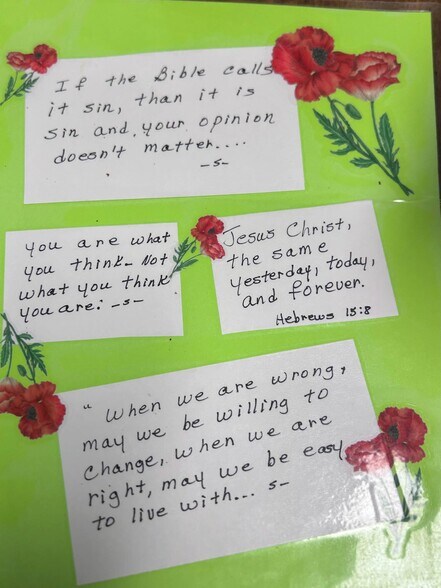 If the Bible calls
it sin, than it is
sin and, your opinion
doesn't matter....
-s-
you are what
you think- Not
what you think
you are: -s-
Jesus Christ,
the same
yesterday, today,
and forever.
Hebrews 13:8
" When we are wrong,
may we be willing to
change, when we are
right, may we be easy
to live with... s-